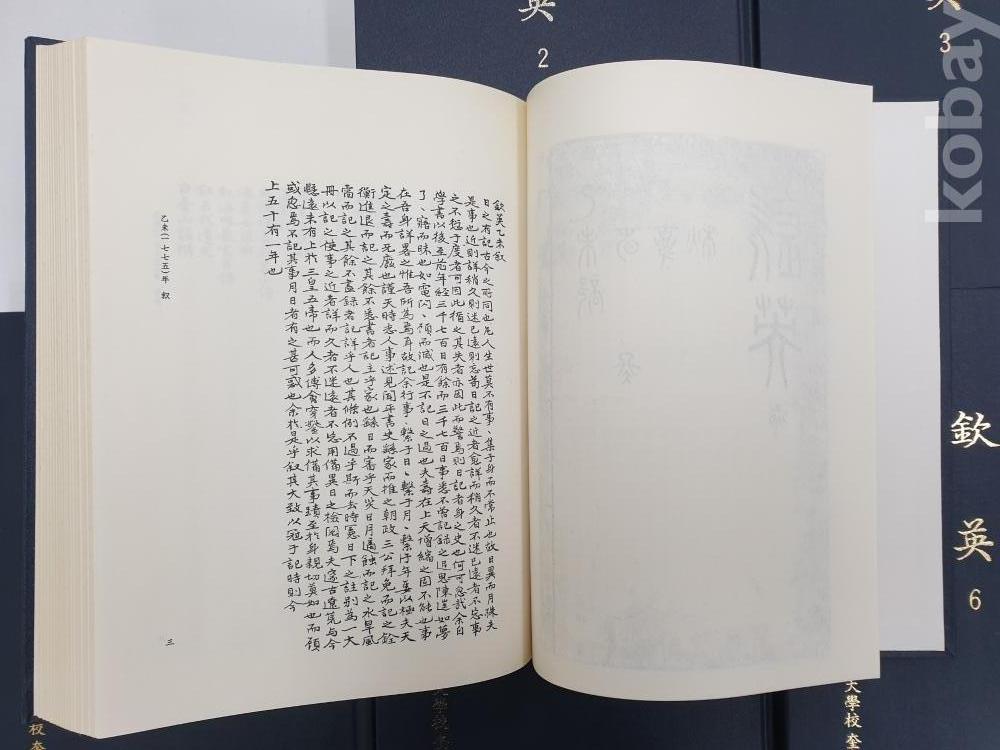 欽英乙未敘
日之有記古今之所同也凡人生世莫不有事、集于身而不常止也故日異而月殊夫
是事也近則詳稍久則迷已遠則忘苟日記之近者愈詳而稍久者不迷已遠者不忘事
之不短于度者可因此循之其失者亦因此而警焉則日記者身之史也何可忽哉余自
學書以後至前年経三千七百日有餘而三千七百日事悉不嘗記錄之追思陳迹如夢
了、寤而昧也如電閃、頋而滅也是不記日之過也夫壽在上天增縮之固不能也事
在吾身詳畧之惟吾所為焉耳故記余行事、繋于日、繋于月、繋于年蓋以極夫天
定之壽而无廢也謹天時悉人事述見聞平書史錄家而推之朝政三公拜免而記之銓
衡進退而記之其餘不悉書者記主乎家也錄日而審乎天災日月薄蝕而記之水旱風
雷而記之其餘不盡録者記詳乎人也其條例不過乎斯而去時憲日下之註別為一大
冊以記之使事之近者詳而久者不迷遠者不忘用備異日之檢閱焉夫邃古遼荒与今
懸遠未有上於三皇五帝也而人多傅會穿鑿以求備其事蹟至於身親切莫如也而頋
或忽焉不記其事月日者有之甚可惑也余於是乎叙其大致以冠于記時則今
上五十有一年也
乙未(一七七五)年 敍
三
英
2
3
欽
英
6
大學校 奎
校 奎
kobay